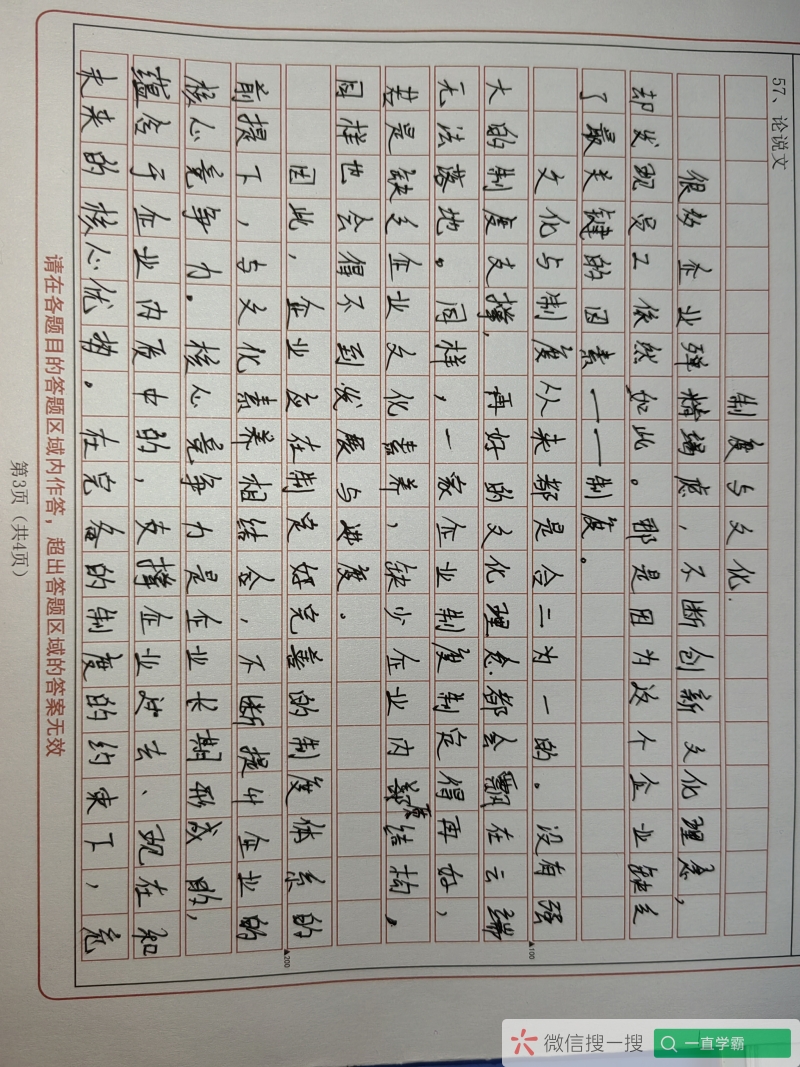 57、论说文
制度与文化.
很多企业殚精竭虑，不断创新文化理念，
却发现员工依然如此。那是因为这个企业缺乏
了最关键的因素——制度。
文化与制度从来都是合二为一的。没有强
大的制度支撑，再好的文化理念.都会飘在云端
无法落地。同样，一家企业制度制定得再好，
若是缺乏企业文化素养，缺少企业内质结构，
同样也会得不到发展与进度.
因此，企业应在制定好完善的制度体系的
前提下，与文化素养相结合，不断提升企业的
核心竞争力。核心竞争力是企业长期形成的，
蕴含于企业内质中的，支撑企业过去、现在和
未来的核心优势。在完备的制度的约束下，
▲100
▲200
请在各题目的答题区域内作答，超出答题区域的答案无效
第3页（共4页）
微信搜一搜
一直学霸